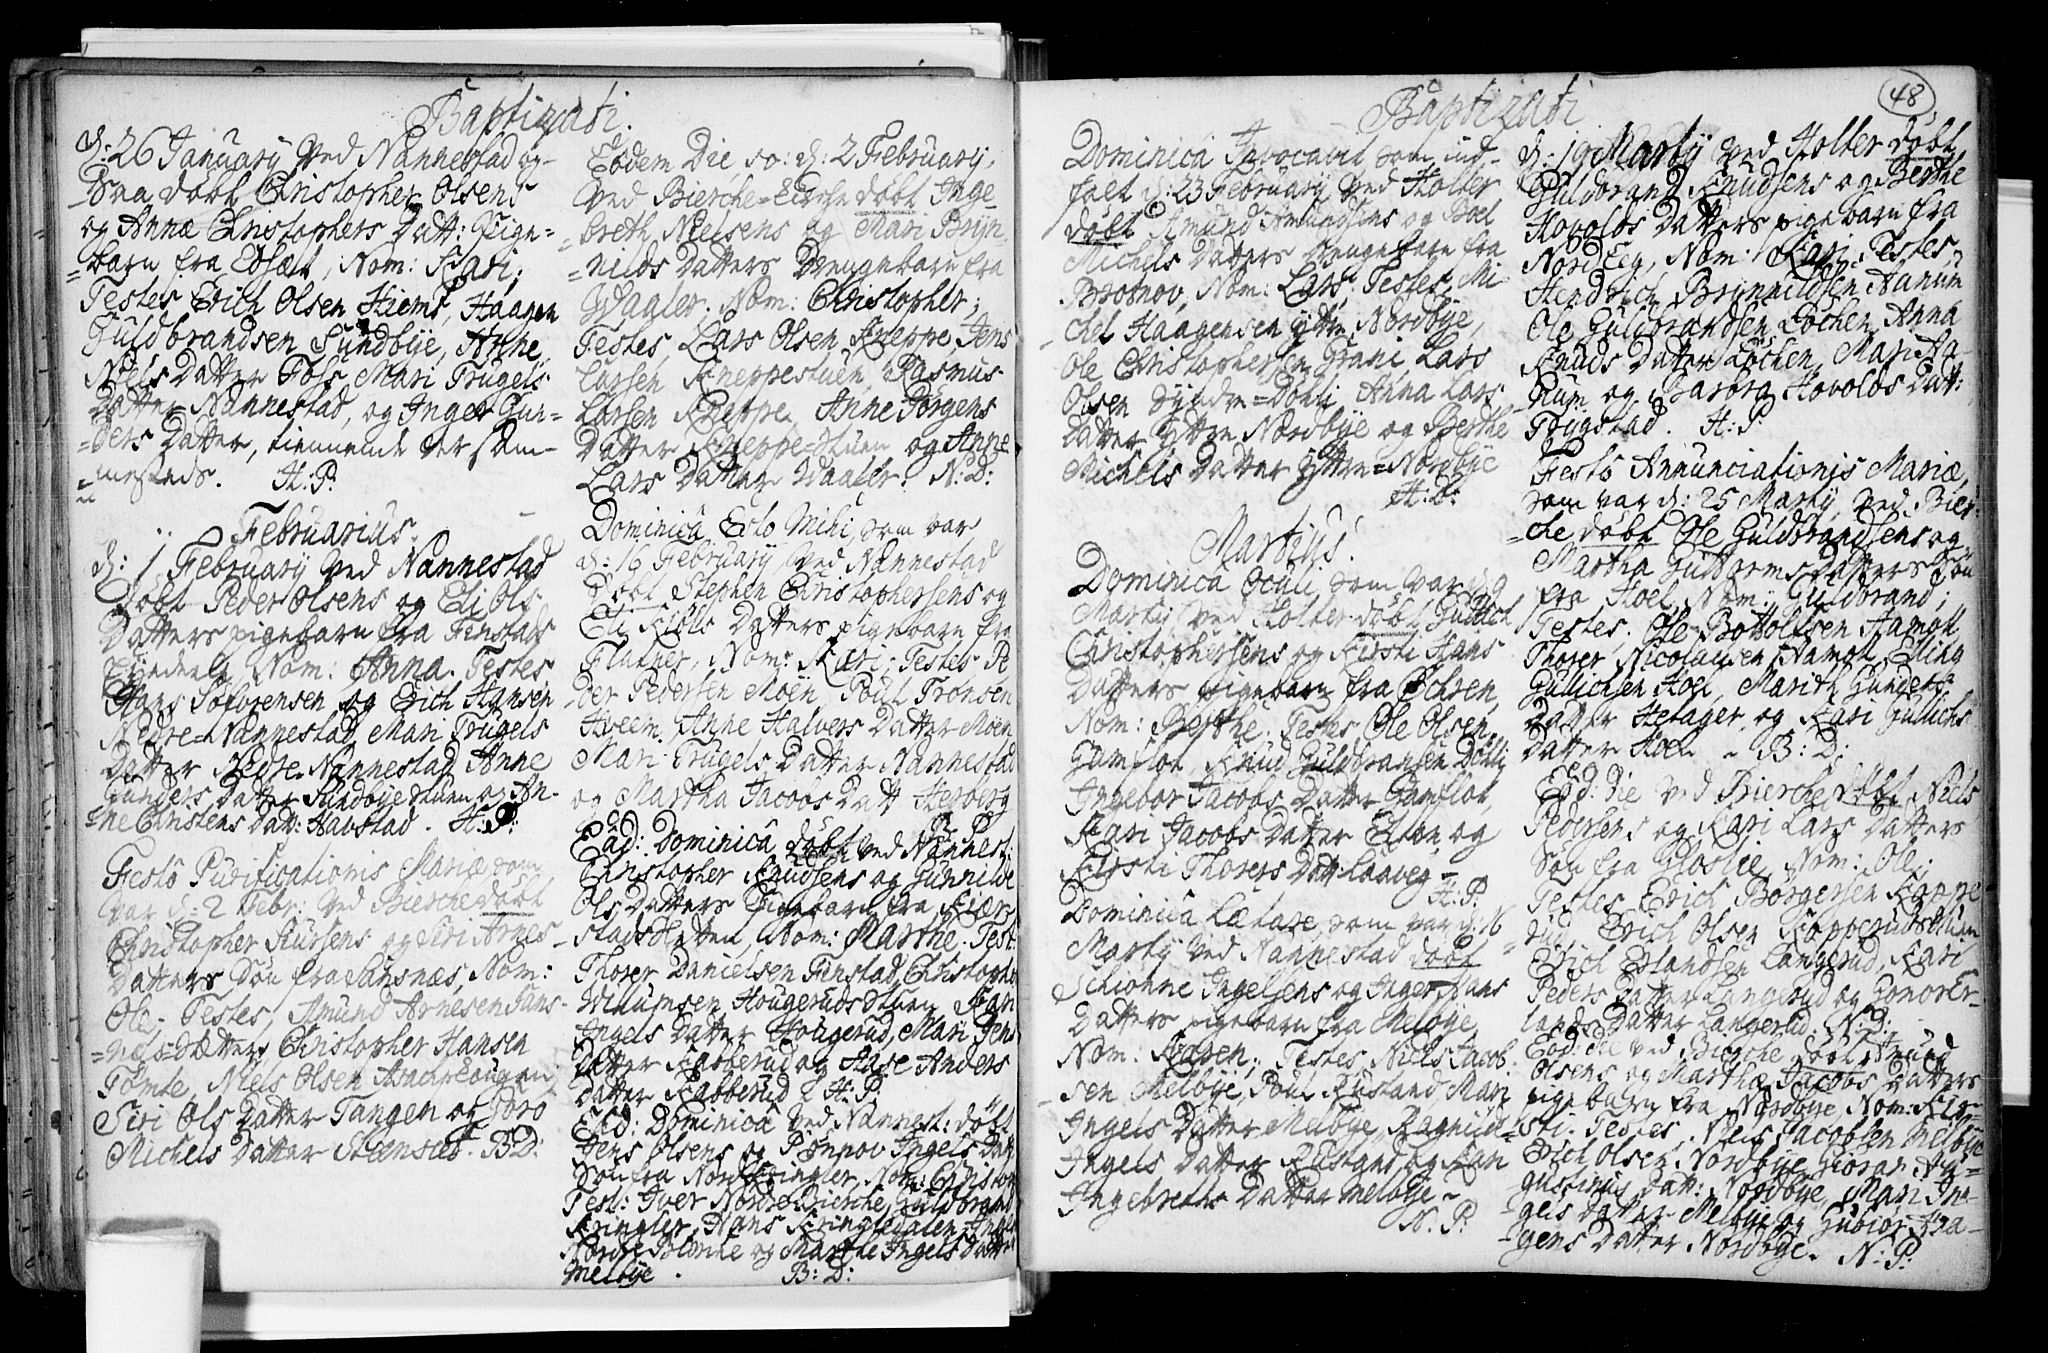 Baptizati.
d: 26 January ved Nannestad og-
-saa döbt Christopher Olsens
og Anne Christophers Datt: Pige-
=barn fra Nom: Kari;
Testes Erich Olsen Hiems, Haagen
Guldbrandsen Sundbÿe, Anne
Niels Datter Fols Mari Trugels
Datter Nannestad, og Inger Gun-
=ders Datter, tiennende der sam-
=mesteds. H. P.
Februarius.
d: 1 February ved Nannestad
Döbt Peder Olsens og Eli Ols
Datters pigebarn fra Fenstads
Nom: Anna. Testes
Hans Sofvrensen og Erich Hansen
Nedre=Nannestad Mari Trugels
Datter Nedre-Nannestad Anne
Gunders Datter Sundbye stuen og An-
=ne Christens Datt: Havstad. H. P:
Festo Purificationis Mariæ, som
var d: 2 Febr: ved Bierche döbt
Christopher Siursens og Siri Arnes
Datters Sön fra Sandsnæs, Nom:
Ole; Testes, Amund Arnesen Sans-
=næs=Sætter, Christopher Hansen
Tömte, Niels Olsen
Siri Ols Datter Tangen og Goro
Michels Datter Steensæt. B D:
Eodem Die so: d: 2 February,
ved Bierche=Kirche döbt Inge
=breth Nielsens og Mari Bryn
=nilds Datters Drengebarn fra
Waaler. Nom: Christopher;
Testes, Lars Olsen Kneppe, Jens
Larsen Kneppestuen, Rasmus
Larsen Kneppe, Anne Jörgens
Datter Kneppe=stuen og Anne
Lars Datter Waaler. N: D:
Dominica Esto Mihi, som var
d: 16 February ved Nannestad
Döbt Stephen Christophersens og
Eli Kiölls Datters pigebarn fra
Flatner, Nom: Kari; Testes Pe
der Pedersen Moen, Poul Tronsen
Aveem, Anne Halvers Datter Moen
Mari Trugels Datter Nannestad
og Martha Jacobs Datt Herberg
Ead: Dominica döbt ved Nannest: H. P.
Christopher Knudsens og Gunnild
Ols Datters Pigebarn fra Kiær
stads Hytten, Nom: Marthe. Test:
Thorer Danielsen Fenstad, Christopher
Willumsen Hougeruds stuen Kari
Ingels Datter Hougerud, Mari Jens
Datter Kasberud og Aase Anders
Datter Kasberud H: P:
Ead: Dominica ved Nannest: döbt
Jens Olsens og Rönnov Ingels Datt
Sön fra Nord Kringler, Nom: Christen
Test: Iver Nordre Bierche, Guldbrand
Kringler, Hans Kringledalen, Inger
Nordre Bierche og Marthe Ingels Datter
Melbye. B: D:
Baptizati
48
Dominica Invocavit som ind-
falt d: 23 February ved Holter
döbt Amund Amundsens og Boel
Michels Datters Drengebarn fra
Brotnov, Nom: Lars, Testes Mi
chel Haagensen ÿttre Nordbÿe,
Ole Christophersen Grani, Lars
Olsen Syndre=Döhli, Anna Lars
Datter ÿttre Nordbÿe og Berthe
Michels Datter ÿttre=Nordbÿe
H: D:
Martius.
Dominica Oculi, som var d: 9
Marty ved Holter döbt Gullich
Christophersens og Kirsti Hans
Datters pigebarn fra Ochsen,
Nom: Berthe. Testes Ole Olsen
Gamflot, Knud Guldbransen Döhli,
Ingebor Jacobs Datter Gamflot,
Kari Jacobs Datter Elton og
Kirsti Thorers Datt: Laaveg -
H: P.
Dominica Lætare, som var d: 16
Marty ved Nannestad döbt
Schiönne Ingelsens og Inger Hans
Datters pigebarn fra Melbÿe,
Nom: Karen; Testes Niels Jacob-
sen Melbÿe, Poul Rustand Mari
Ingels Datter Melbÿe, Ragnild
Ingels Datter Rustand og Kari
Ingebreths Datter Melbÿe -
N. P:
d: 19 Marty ved Holter döbt
Guldbrand Knudsens og Berthe
Hovolds Datters pigebarn fra
Nordeeg, Nom: Kari. Testes,
Hendrich Brynnildsen Aanum
Ole Guldbrandsen Löchen Anna
Knuds Datter Löchen, Mari Aa-
num og Barbra Hovolds Datt:
Trygstad. H: P.
Festo Annunciationis Mariæ,
som var d: 25 Marty, ved Bier-
=che döbt Ole Guldbrandsens og
Martha Guttorms Datters Sön
fra Hoel, Nom: Guldbrand;
Testes. Ole Bottolfsen Aamot
Thorer Nicolaisen Aamot, Elling
Gullichsen Hoel, Marith Gunders
Datter Hetager, og Kari Gullichs
Datter Hoel - B: D:
Eod: die ved Bierche döbt Niels
Pedersens og Kari Lars Datters
Sön fra Gloslie, Nom: Ole;
Testes Erich Börgersen Koppe
rud, Erich Olsen Kopperudstuen
Erich Erlandsen Langerud, Kari
Peders Datter Langerud og Gonor Er-
lands Datter Langerud. N: D:
Eod: die ved Bierche döbt Knud
Olsens og Marthæ Jacobs Datters
pigebarn fra Nordbÿe, Nom: Kir-
=sti. Testes, Niels Jacobsen Melbÿe
Erich Olsen Nordbÿe, Giöran Au-
gustinus Datt: Nordbÿe, Mari In-
gels Datter Melbÿe og Gubiör Haa-
=gens Datter Nordbÿe. N: P: